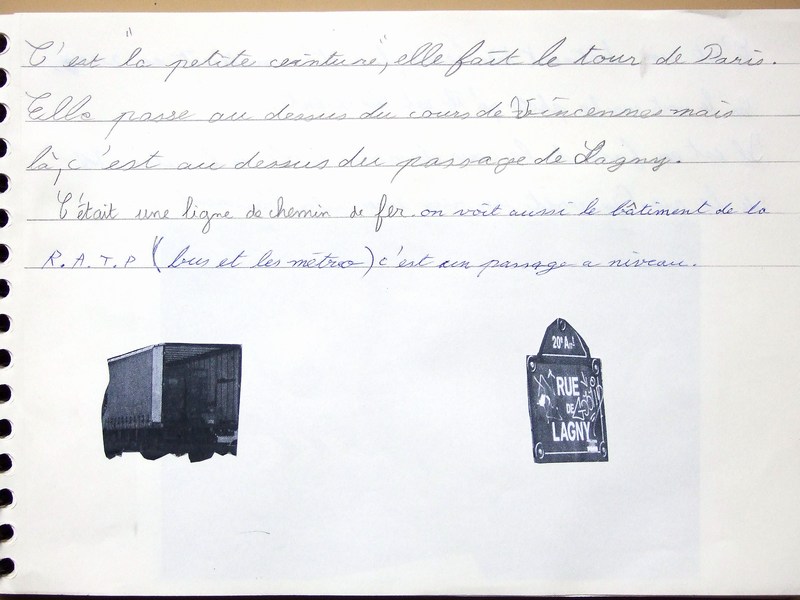 C'est "la petite ceinture", elle fait le tour de Paris.
Elle passe au dessus du cours de Vincennes mais
là, c'est au dessus du passage de Lagny.
C'était une ligne de chemin de fer. on voit aussi le bâtiment de la
R.A.T.P (bus et les métro) c'est un passage a niveau.
20e Arrt
RUE
DE
LAGNY